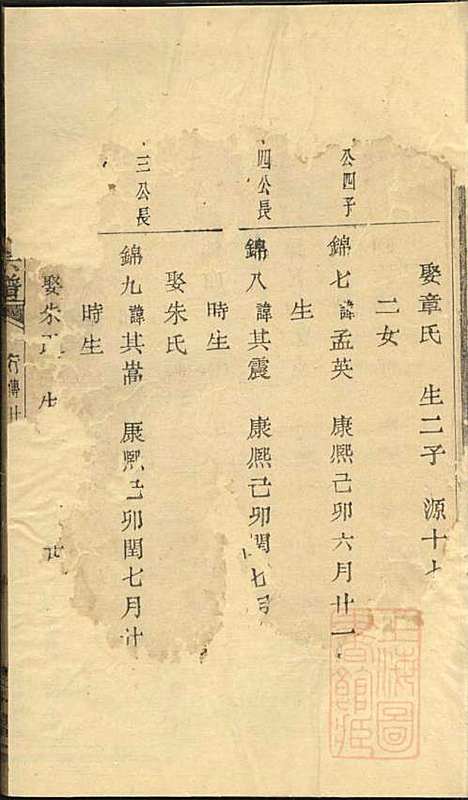 娶章氏 生二子 源十
二女
公四子
錦七 諱孟英 康熙己卯六月廿一
生
四公長
錦八 諱其震 康熙己卯閏七月
時生
娶朱氏
三公長
錦九 諱其嵩 康熙己卯閏七月廿
時生
娶朱氏 生
宗譜
行傳廿
上海圖書館藏